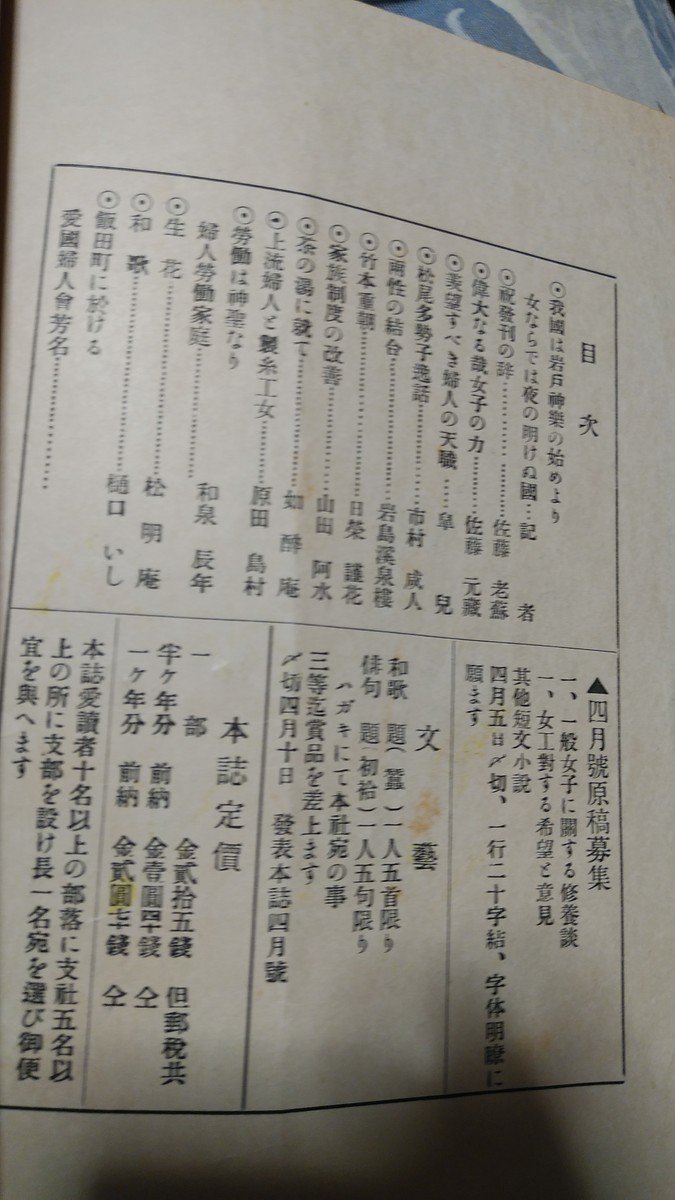 目次
⦿我國は岩戸神樂の始めより
女ならでは夜の明けぬ國…記者
⦿祝發刊の辞………………佐藤老蘇
⦿偉大なる哉女子の力………佐藤元藏
⦿羨望すべき婦人の天職……皐兒
⦿松尾多勢子逸話……………市村咸人
⦿兩性の結合…………………岩島溪泉樓
⦿竹本重朝……………………日榮護花
⦿家族制度の改善……………山田阿水
⦿茶の湯に就て………………如醉庵
⦿上流婦人と製糸工女………原田島村
⦿勞働は神聖なり
婦人勞働家庭………………和泉辰年
⦿生花…………………………松明庵
⦿和歌…………………………樋口いし
⦿飯田町に於ける
愛國婦人會芳名………………
▲四月號原稿募集
一、一般女子に關する修養談
一、女工對する希望と意見
其他短文小説
四月五日〆切、一行二十字結、字体明瞭に
願ます
文藝
和歌 題(蠶)一人五首限り
俳句 題(初袷)一人五句限り
ハガキにて本社宛の事
三等迄賞品を差上ます
〆切四月十日 發表本誌四月號
本誌定價
一部 金貳拾五錢 但郵税共
半ケ年分 前納 金壹圓四十錢 仝
一ケ年分 前納 金貳圓七十錢 仝
本誌愛讀者十名以上の部落に支社五名以
上の所に支部を設け長一名宛を選び御便
宜を與へます